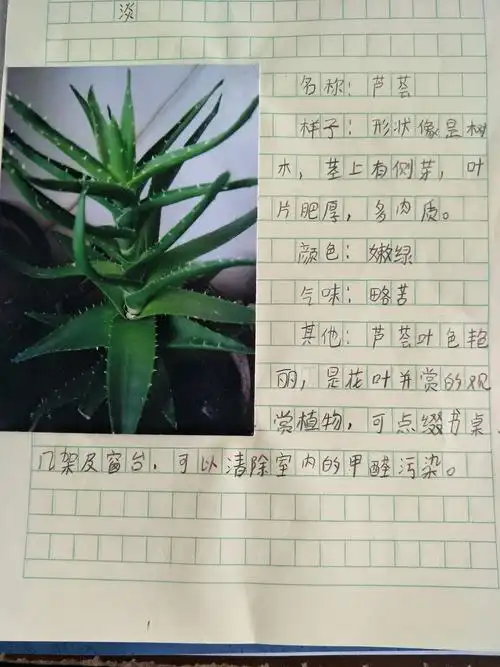 淡
名称：芦荟
样子：形状像是树
木，茎上有侧芽，叶
片肥厚，多肉质。
颜色：嫩绿
气味：略苦
其他：芦荟叶色艳
丽，是花叶并赏的观
赏植物，可点缀书桌、
几架及窗台，可以清除室内的甲醛污染。